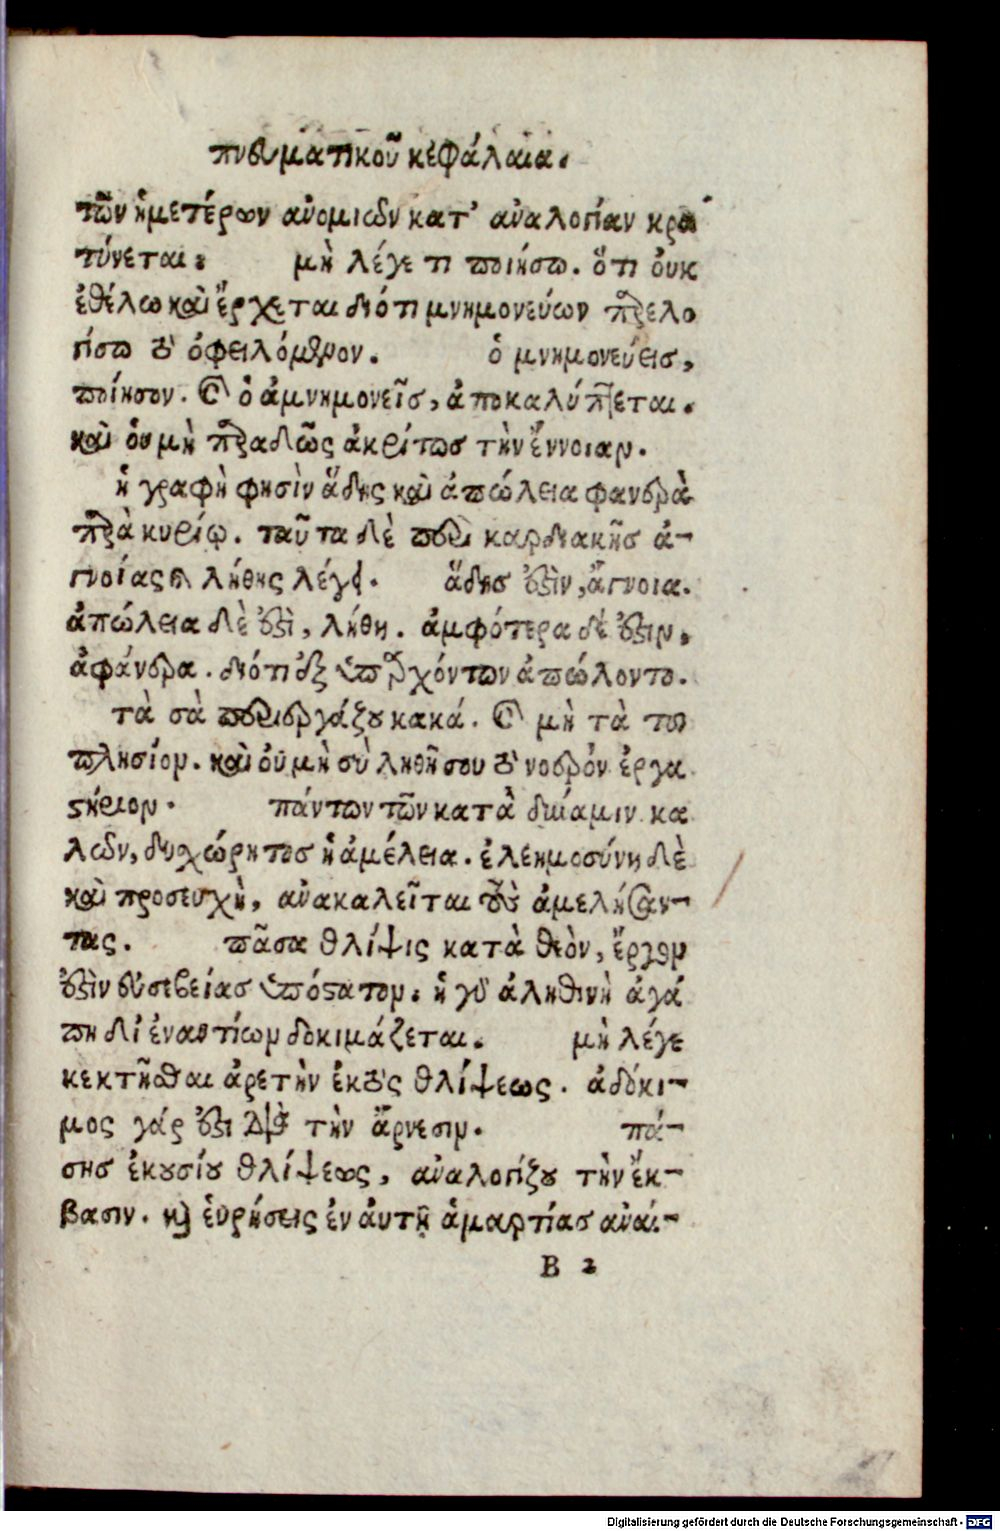 πνευματικοῦ κεφάλαια.
τῶν ἡμετέρων ἀνομιῶν κατ' ἀναλογίαν κρα
τύνεται. μὴ λέγε τί ποιήσω. ὅτι ὀυκ
ἐθέλω καὶ ἔρχεται διότι μνημονεύων παρελο
γίσω τὸ ὀφειλόμενον. ὁ μνημονεύεις,
ποίησον. καὶ ὁ ἀμνημονεῖς, ἀποκαλύπτεται.
καὶ ὀυ μὴ παραδῶς ἀκρίτως τὴν ἔννοιαν.
ἡ γραφὴ φησὶν ἅδης καὶ ἀπώλεια φανερὰ
παρὰ κυρίῳ. ταῦτα δὲ περὶ καρδιακῆς ἀ-
γνοίας καὶ λήθης λέγει. ἅδης ἐστὶν, ἄγνοια.
ἀπώλεια δὲ ἐστὶ, λήθη. ἀμφότερα δέ ἐστιν,
ἀφάνερα. διότι ἐξ ὑπαρχόντων ἀπώλοντο.
τὰ σὰ περιεργάζου κακά. καὶ μὴ τὰ τοῦ
πλησίον. καὶ ὀυ μὴ σὺ ληθῆ σου τὸ νοερὸν ἐργα
στήριον. πάντων τῶν κατὰ δύναμιν κα
λῶν, δυχώρητος ἡ ἀμέλεια. ἐλεημοσύνη δὲ
καὶ προσευχὴ, ἀνακαλεῖται τοὺς ἀμελήσαν-
τας. πᾶσα θλίψις κατὰ θεὸν, ἔργον
ἐστὶν ἐυσεβείας ὑπόστατον. ἡ γὰρ ἀληθινὴ ἀγά
πη δι' ἐναντίων δοκιμάζεται. μὴ λέγε
κεκτῆσθαι ἀρετὴν ἐκτὸς θλίψεως. ἀδόκι-
μος γάρ ἐστι διὰ τὴν ἄρνεσιν. πά-
σης ἐκουσίου θλίψεως, ἀναλογίζου τὴν ἔκ-
βασιν. καὶ ἑυρήσεις ἐν ἀυτῇ ἁμαρτίας ἀναί-
B 2
Digitalisierung gefördert durch die Deutsche Forschungsgemeinschaft - DFG